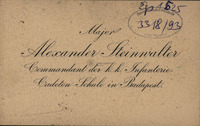 33.18/93
Major
Alexander Steinwalter
Commandant der k. k. Infanterie-
Cadeten-Schule in Budapest.